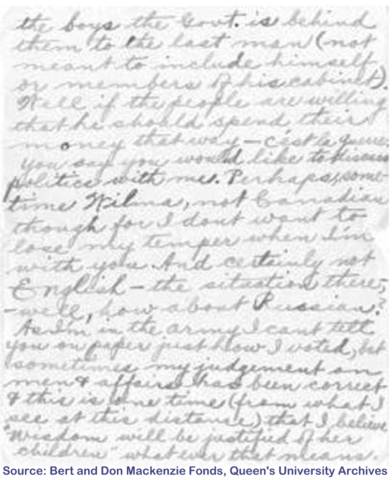 the boys the Govt. is behind
them to the last man (not
meant to include himself
or members of his cabinet).
Well if the people are willing
that he should spend their
money that way – c'est la guerre
you say you would like to discuss
politics with me. Perhaps, some
time Wilma, not Canadian
though for I dont want to
lose my temper when I'm
with you. And certainly not
English – the situation there,
– well, how about Russian?
As I'm in the army I cant tell
you on paper just how I voted, but
sometimes my judgement on
men & affairs has been correct
& this is one time (from what I
see at this distance) that I believe
"Wisdom will be justified of her
children" what ever that means.
Source: Bert and Don Mackenzie Fonds, Queen's University Archives